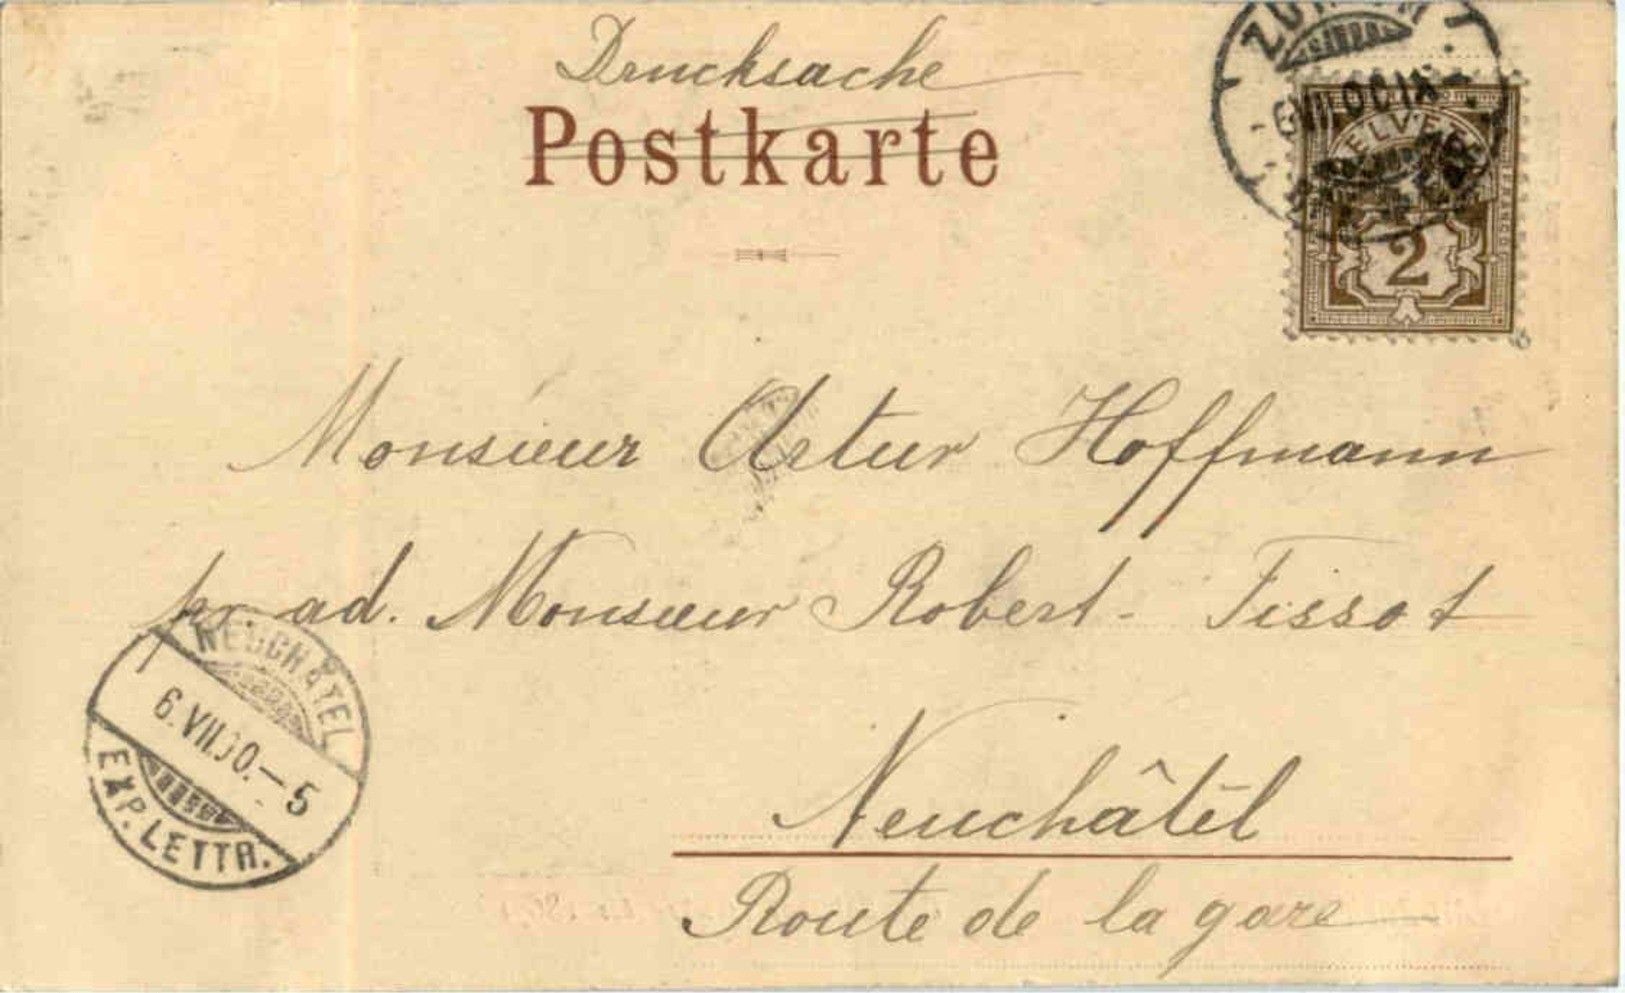 Drucksache
Postkarte
ZÜRICH
HELVETIA
2
Monsieur Artur Hoffmann
pr. ad. Monsieur Robert - Tissot
NEUCHÂTEL
6.VII.00.—5
EXP. LETTR.
Neuchâtel
Route de la gare